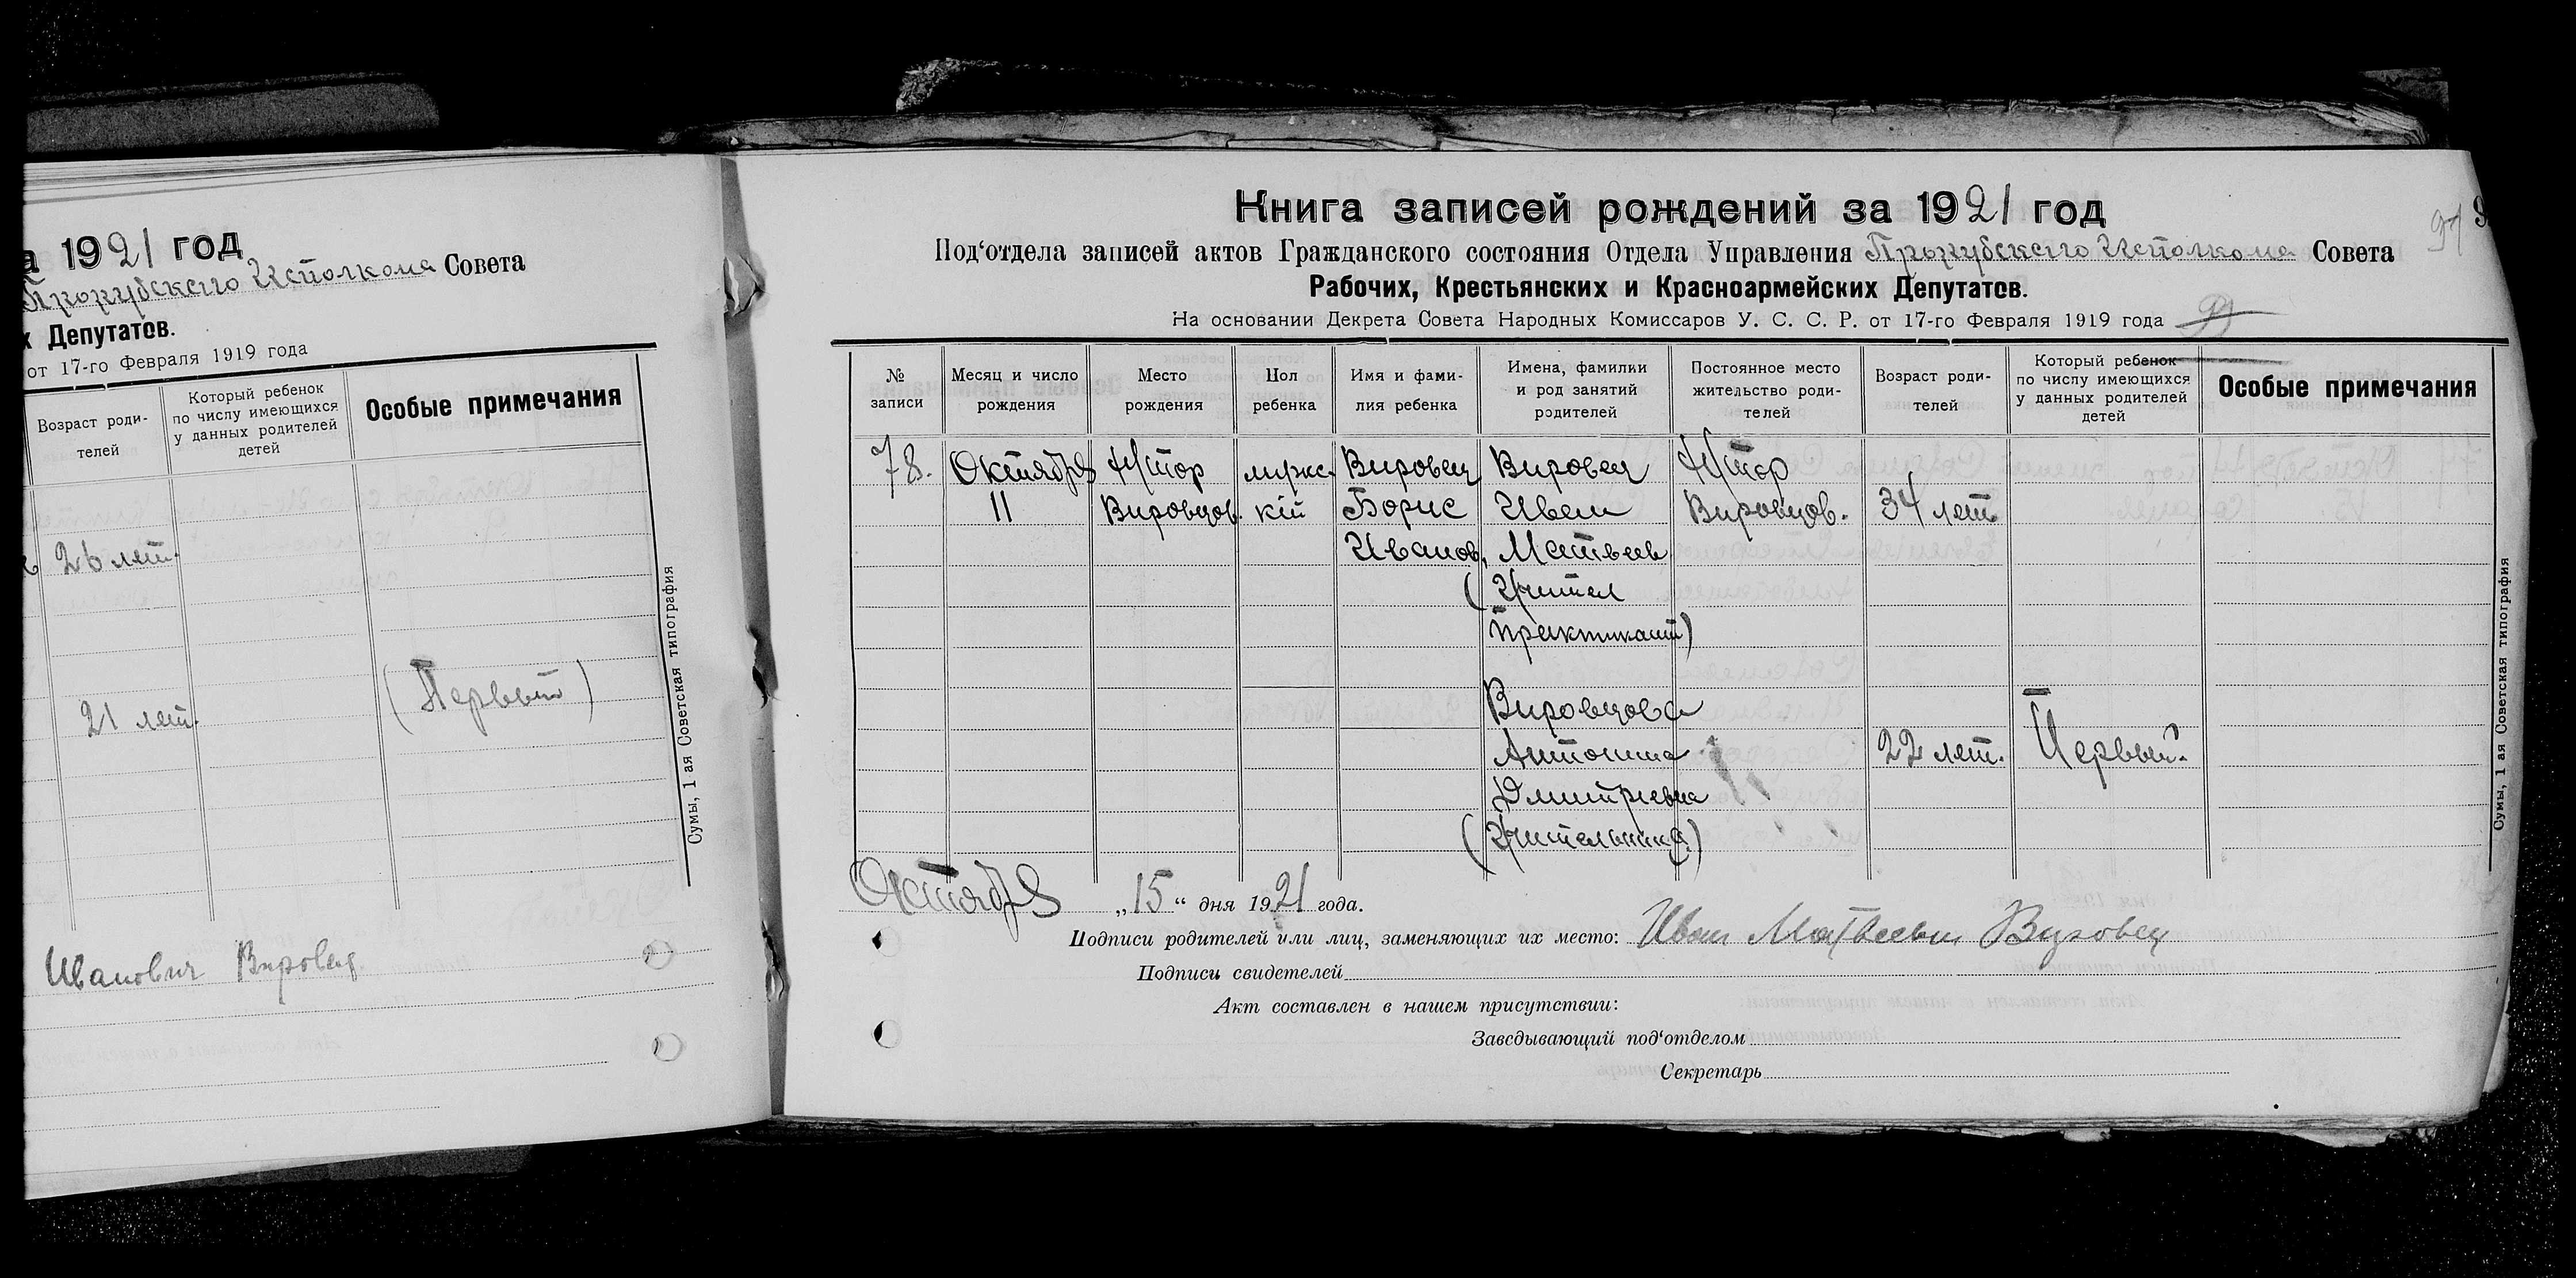 а 1921 год
Прорубского Исполкома Совета
х Депутатов.
от 17-го Февраля 1919 года
Возраст роди-
телей
Который ребенок
по числу имеющихся
у данных родителей
детей
Особые примечания
26 лет.
(Первый)
21 лет.
Сумы, 1 ая Советская типография
Иванович Вировец
Книга записей рождений за 1921 год
Под‘отдела записей актов Гражданского состояния Отдела Управления Прорубского Исполкома Совета
Рабочих, Крестьянских и Красноармейских Депутатов.
На основании Декрета Совета Народных Комиссаров У. С. С. Р. от 17-го Февраля 1919 года
№
записи
Месяц и число
рождения
Место
рождения
Пол
ребенка
Имя и фами-
лия ребенка
Имена, фамилии
и род занятий
родителей
Постоянное место
жительство роди-
телей
Возраст роди-
телей
Который ребенок
по числу имеющихся
у данных родителей
детей
Особые примечания
78.
Октября
11
Хутор
Вировцов.
мужс-
кій
Вировец
Борис
Иванов,
Вировец
Иван
Матвеев
(Учител
практикант)
Хутор
Вировцов.
34 лет
Вировцова
Антонина
Дмитриевна
(Учительница)
22 лет.
Первый.
Сумы, 1 ая Советская типография
Октября „15“ дня 1921 года.
Подписи родителей или лиц, заменяющих их место: Иван Матвеевич Вировец
Подписи свидетелей
Акт составлен в нашем присутствии:
Заведывающий под‘отделом
Секретарь